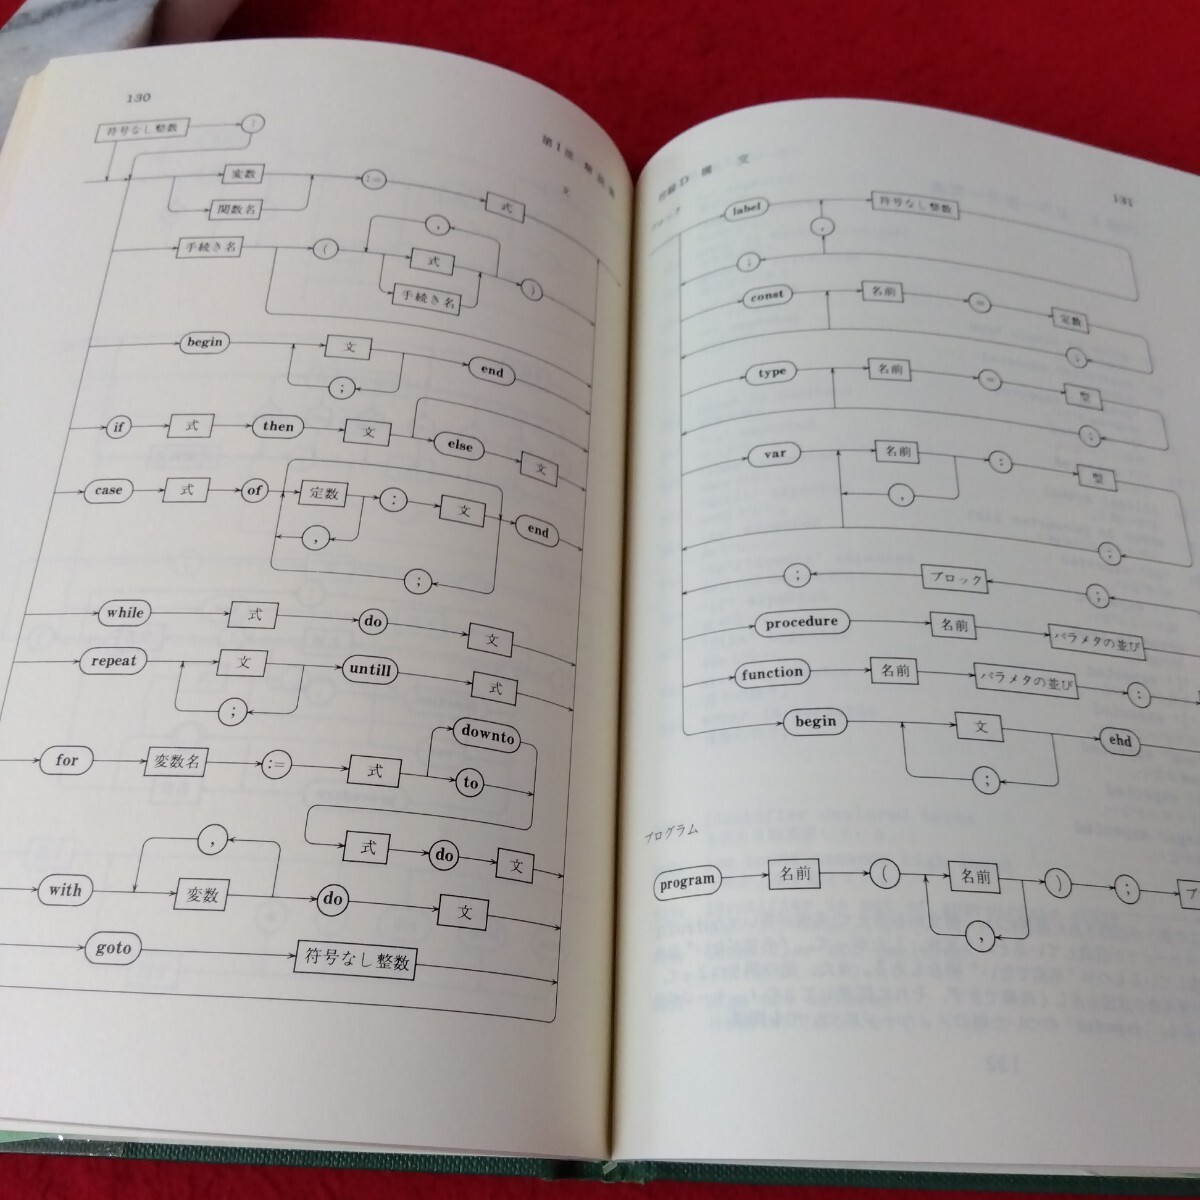 130
符号なし整数 :
第1部 解説書
文
変数 := 式
関数名
手続き名 ( 式 , )
手続き名
begin 文 end
;
if 式 then 文 else 文
case 式 of 定数 : 文 end
,
;
while 式 do 文
repeat 文 untill 式
;
for 変数名 := 式 downto
to
式 do 文
,
with 変数 do 文
goto 符号なし整数
付録D 構文
131
ブロック
label 符号なし整数
,
;
const 名前 = 定数
;
type 名前 = 型
;
var 名前 : 型
,
;
; ブロック ;
procedure 名前 パラメタの並び
function 名前 パラメタの並び :
begin 文 ehd
;
プログラム
program 名前 ( 名前 ) ;
,